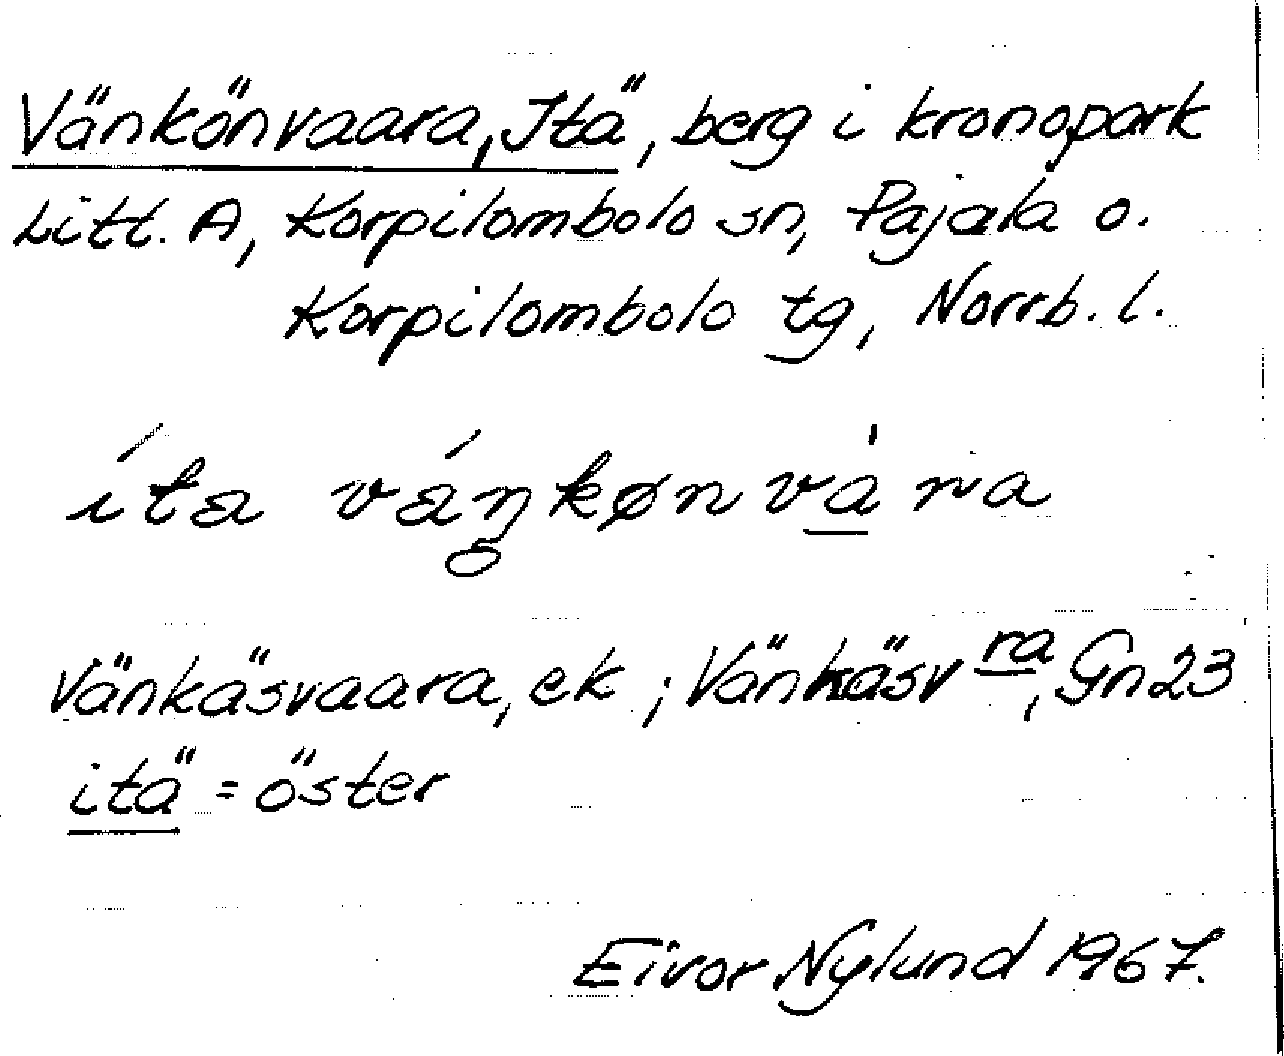 Vänkönvaara, Itä, berg i kronopark
Litt. A, Korpilombolo sn, Pajala o.
Korpilombolo tg, Norrb. l.
íta váŋkønvàra
Vänkäsvaara, ek ; Vänkäsvra, Gn 23
itä = öster
Eivor Nylund 1967.